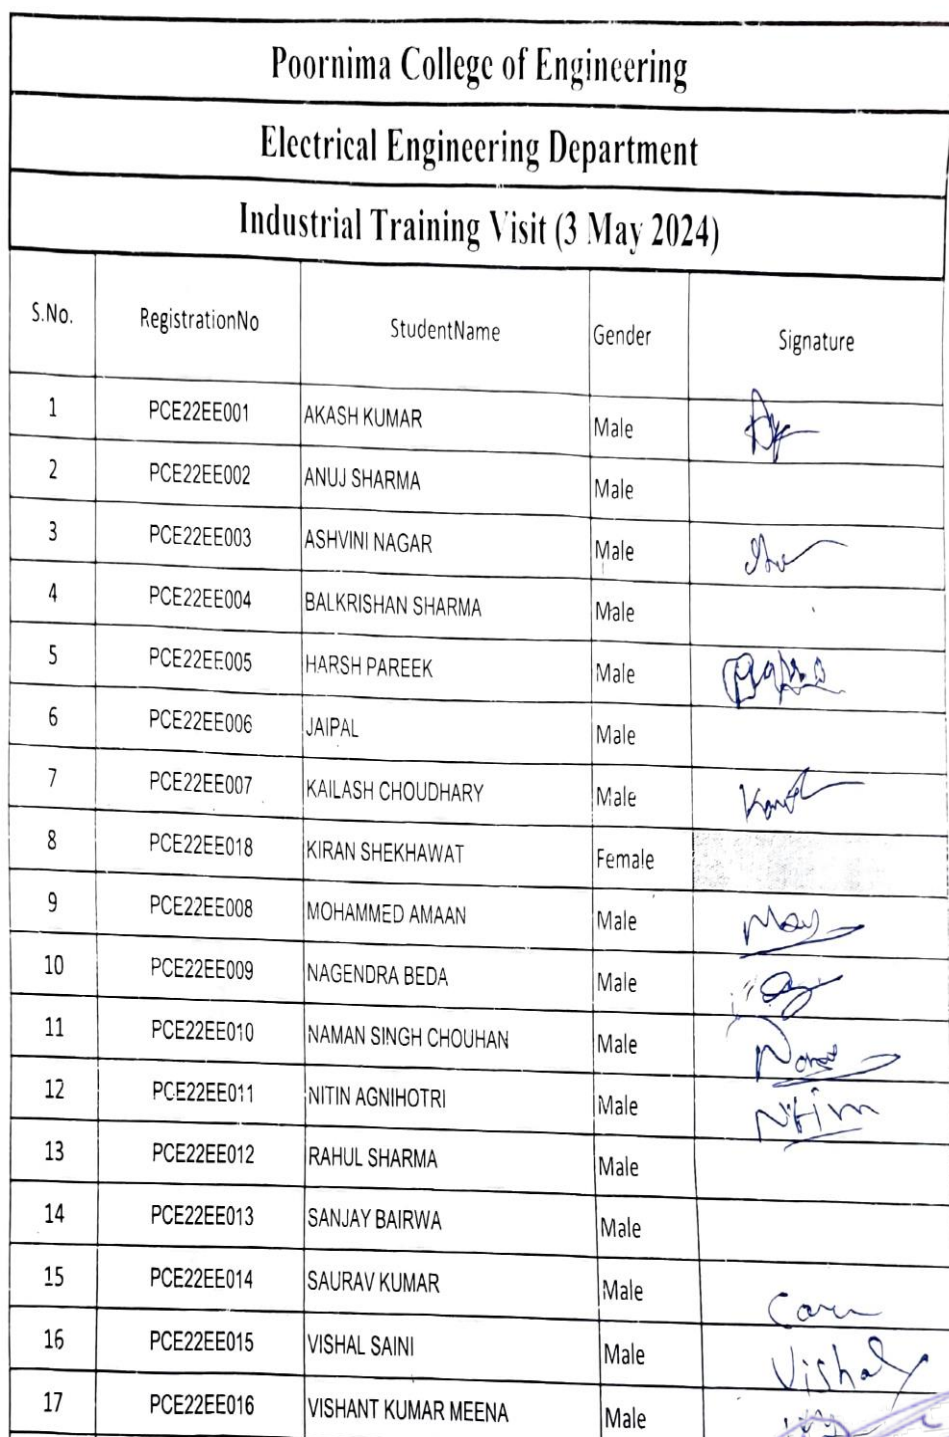 Poornima College of Engineering
Electrical Engineering Department
Industrial Training Visit (3 May 2024)
S.No. RegistrationNo StudentName Gender Signature
1 PCE22EE001 AKASH KUMAR Male
2 PCE22EE002 ANUJ SHARMA Male
3 PCE22EE003 ASHVINI NAGAR Male
4 PCE22EE004 BALKRISHAN SHARMA Male
5 PCE22EE005 HARSH PAREEK Male
6 PCE22EE006 JAIPAL Male
7 PCE22EE007 KAILASH CHOUDHARY Male
8 PCE22EE018 KIRAN SHEKHAWAT Female
9 PCE22EE008 MOHAMMED AMAAN Male
10 PCE22EE009 NAGENDRA BEDA Male
11 PCE22EE010 NAMAN SINGH CHOUHAN Male
12 PCE22EE011 NITIN AGNIHOTRI Male
13 PCE22EE012 RAHUL SHARMA Male
14 PCE22EE013 SANJAY BAIRWA Male
15 PCE22EE014 SAURAV KUMAR Male
16 PCE22EE015 VISHAL SAINI Male Vishal
17 PCE22EE016 VISHANT KUMAR MEENA Male